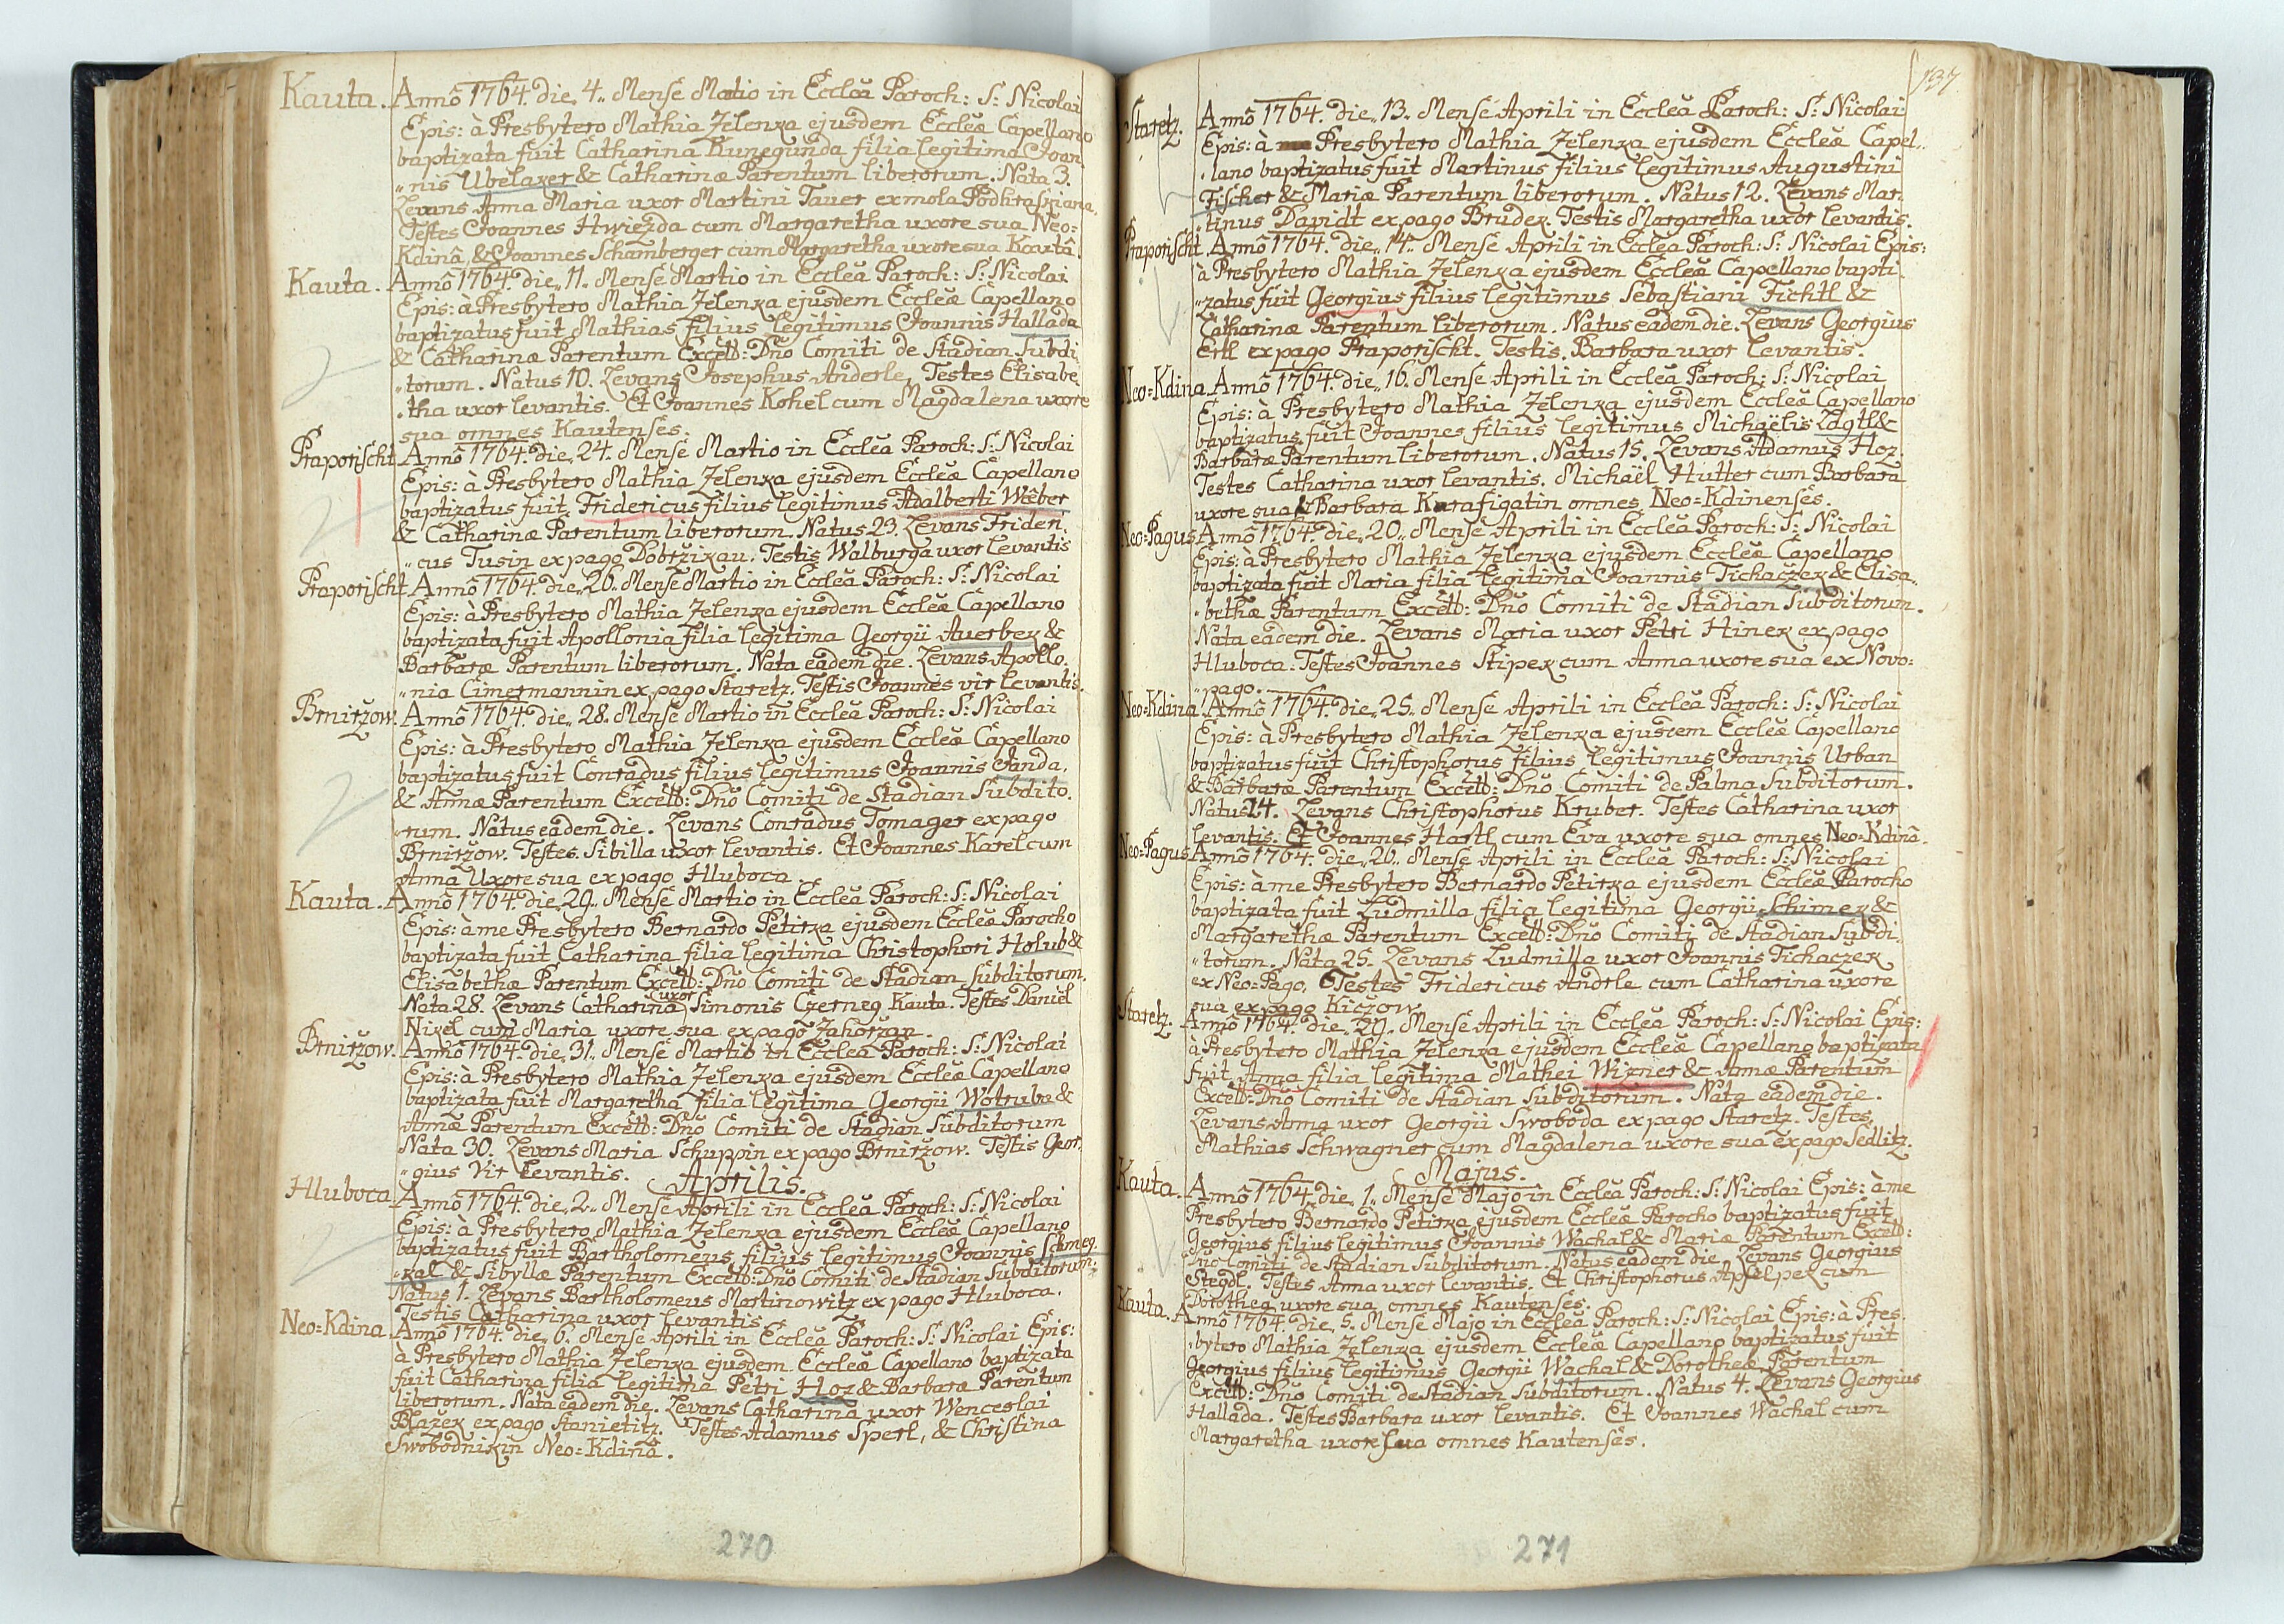 Kauta. Annô 1764. die. 4.. Mense Martio in Ecclêa Paroch: S: Nicolai
Epis: à Presbytero Mathia Jelenka ejusdem Eccleæ Capellano
baptizata fuit Catharina Kunegunda filia legitima Joan
„nis Ubelaker & Catharinæ Parentum liberorum. Nata 3.
Levans Anna Maria uxor Martini Tauer ex mola Podhraskiana.
Testes Joannes Hwiezda cum Margaretha uxore sua Neo=
Kdinâ, & Joannes Schamberger cum Margaretha uxore sua Kautâ.
Kauta. Annô 1764. die„ 11. Mense Martio in Ecclêa Paroch: S: Nicolai
Epis: à Presbytero Mathia Jelenka ejusdem Eccleæ Capellano
baptizatus fuit Mathias filius legitimus Joannis Hallada
& Catharinæ Parentum Excell: Dño Comiti de Stadian Subdi
„torum. Natus 10. Levans Josephus Anderle. Testes Elisabe
„tha uxor levantis. Et Joannes Kohel cum Magdalena uxore
sua omnes Kautenses.
Praporischt. Annô 1764. die. 24. Mense Martio in Ecclêa Paroch: S: Nicolai
Epis: à Presbytero Mathia Jelenka ejusdem Eccleæ Capellano
baptizatus fuit Fridericus filius legitimus Adalberti Wëber
& Catharinæ Parentum liberorum. Natus 23. Levans Frideri
„cus Tusin ex pago Dobržikau. Testis Walburga uxor levantis
Praporischt Annô 1764. die„ 26. Mense Martio in Ecclêa Paroch: S: Nicolai
Epis: à Presbytero Mathia Jelenka ejusdem Eccleæ Capellano
baptizata fuit Apollonia filia legitima Georgii Auerbek &
Barbaræ Parentum liberorum. Nata eadem die. Levans Apollo
„nia Cimermannin ex pago Staretz. Testis Joannes vir levantis.
Brniržow. Annô 1764. die„ 28. Mense Martio in Ecclêa Paroch: S: Nicolai
Epis: à Presbytero Mathia Jelenka ejusdem Eccleæ Capellano
baptizatus fuit Conradus filius legitimus Joannis Janda.
& Annæ Parentum Excell: Dño Comiti de Stadian Subdito.
„rum. Natus eadem die. Levans Conradus Tomager ex pago
Brniržow. Testes Sibilla uxor levantis. Et Joannes Karel cum
Anna Uxore sua ex pago Hluboca.
Kauta. Annô 1764. die„ 29.. Mense Martio in Ecclêa Paroch: S: Nicolai
Epis: à me Presbytero Bernardo Petirka ejusdem Eccleæ Parocho
baptizata fuit Catharina filia legitima Christophori Holub &
Elisabethæ Parentum Excell: Dño Comiti de Stadian Subditorum.
Nata 28. Levans Catharina uxor Simonis Czerney Kauta. Testes Daniel
Nikel cum Maria uxore sua ex pago Zahoržan.
Brniržow. Annô 1764. die„ 31. Mense Martio in Ecclêa Paroch: S: Nicolai
Epis: à Presbytero Mathia Jelenka ejusdem Eccleæ Capellano
baptizata fuit Margaretha filia legitima Georgii Wotruba &
Annæ Parentum Excell: Dño Comiti de Stadian Subditorum
Nata 30. Levans Maria Schuppin ex pago Brniržow. Testis Geor
„gius Vir levantis. Aprilis.
Hluboca Annô 1764. die„ 2.. Mense Aprili in Ecclêa Paroch: S: Nicolai
Epis: à Presbytero Mathia Jelenka ejusdem Eccleæ Capellano
baptizatus fuit Bartholomeus filius legitimus Joannis Schmeg
„kal & Sibyllæ Parentum Excell: Dño Comiti de Stadian Subditorum.
Natus 1. Levans Bartholomeus Martinowitz ex pago Hluboca.
Testis Catharina uxor levantis.
Neo=Kdina. Annô 1764. die„ 6. Mense Aprili in Ecclêa Paroch: S: Nicolai Epis:
à Presbytero Mathia Jelenka ejusdem Eccleæ Capellano baptizata
fuit Catharina filia legitima Petri Hoz & Barbaræ Parentum
liberorum. Nata eadem die. Levans Catharina uxor Wenceslai
Blažek ex pago Stanietitz. Testes Adamus Sperl, & Christina
Swobodnikin Neo=Kdinâ.
270
137
Staretz. Annô 1764. die„ 13.. Mense Aprili in Ecclêa Paroch: S: Nicolai
Epis: à Presbytero Mathia Jelenka ejusdem Eccleæ Capel.
„lano baptizatus fuit Martinus filius legitimus Augustini
Fischer & Mariæ Parentum liberorum. Natus 12. Levans Mar
„tinus Davidt ex pago Bruder. Testis Margaretha uxor levantis.
Praporischt Annô 1764. die„ 14. Mense Aprili in Ecclêa Paroch: S: Nicolai Epis:
à Presbytero Mathia Jelenka ejusdem Eccleæ Capellano bapti
„zatus fuit Georgius filius legitimus Sebastiani Fichtl &
Catharinæ Parentum liberorum. Natus eadem die. Levans Georgius
Ertl ex pago Praporischt. Testis. Barbara uxor levantis.
Neo=Kdina Annô 1764. die„ 16. Mense Aprili in Ecclêa Paroch: S: Nicolai
Epis: à Presbytero Mathia Jelenka ejusdem Eccleæ Capellano
baptizatus fuit Joannes filius legitimus Michaëlis &
Barbaræ Parentum liberorum. Natus 15. Levans Adamus Hoz.
Testes Catharina uxor levantis. Michaël Hutter cum Barbara
uxore sua & Barbara Karafigatin omnes Neo=Kdinenses.
Neo=Pagus Annô 1764. die„ 20.. Mense Aprili in Ecclêa Paroch: S: Nicolai
Epis: à Presbytero Mathia Jelenka ejusdem Eccleæ Capellano
baptizata fuit Maria filia legitima Joannis Tichaczek & Elisa„
„bethæ Parentum Excell: Dño Comiti de Stadian Subditorum.
Nata eadem die. Levans Maria uxor Petri Hinek ex pago
Hluboca: Testes Joannes Stipek cum Anna uxore sua ex Novo=
„pago.
Neo=Kdina. Annô 1764. die„ 25.. Mense Aprili in Ecclêa Paroch: S: Nicolai
Epis: à Presbytero Mathia Jelenka ejusdem Eccleæ Capellano
baptizatus fuit Christophorus filius legitimus Joannis Urban
& Barbaræ Parentum Excell: Dño Comiti de Palma Subditorum.
Natus 24. Levans Christophorus Kruber. Testes Catharina uxor
levantis. Et Joannes Hartl cum Eva uxore sua omnes Neo=Kdinâ.
Neo=Pagus Annô 1764. die„ 26.. Mense Aprili in Ecclêa Paroch: S: Nicolai
Epis: à me Presbytero Bernardo Petirka ejusdem Eccleæ Parocho
baptizata fuit Ludmilla filia legitima Georgii Schimek &
Margarethæ Parentum Excell: Dño Comiti de Stadian Subdi.
„torum. Nata 25. Levans Ludmilla uxor Joannis Tichaczek
ex Neo=Pago. Testes Fridericus Andrle cum Catharina uxore
sua ex pago Kiczow.
Staretz. Annô 1764. die„ 29. Mense Aprili in Ecclêa Paroch: S: Nicolai Epis:
à Presbytero Mathia Jelenka ejusdem Eccleæ Capellano baptizata
fuit Anna filia legitima Mathei Wizner & Annæ Parentum
Excell: Dño Comiti de Stadian Subditorum. Nata eadem die.
Levans Anna uxor Georgii Swoboda ex pago Staretz. Testes
Mathias Schwagner cum Magdalena uxore sua ex pago Sedlitz.
Majus.
Kauta. Annô 1764. die„ 1.. Mense Majo in Ecclêa Paroch: S: Nicolai Epis: à me
Presbytero Bernardo Petirka ejusdem Eccleæ Parocho baptizatus fuit
Georgius filius legitimus Joannis Wachal & Mariæ Parentum Excell:
Dño Comiti de Stadian Subditorum. Natus eadem die. Levans Georgius
Stegdl. Testes Anna uxor levantis. Et Christophorus Apfelpek cum
Dorothea uxore sua omnes Kautenses.
Kauta. Annô 1764. die„ 5. Mense Majo in Ecclêa Paroch: S: Nicolai Epis: à Pres
„bytero Mathia Jelenka ejusdem Eccleæ Capellano baptizatus fuit
Georgius filius legitimus Georgii Wachal & Dorotheæ Parentum
Excell: Dño Comiti de Stadian Subditorum. Natus 4. Levans Georgius
Hallada. Testes Barbara uxor levantis. Et Joannes Wachal cum
Margaretha uxore sua omnes Kautenses.
271